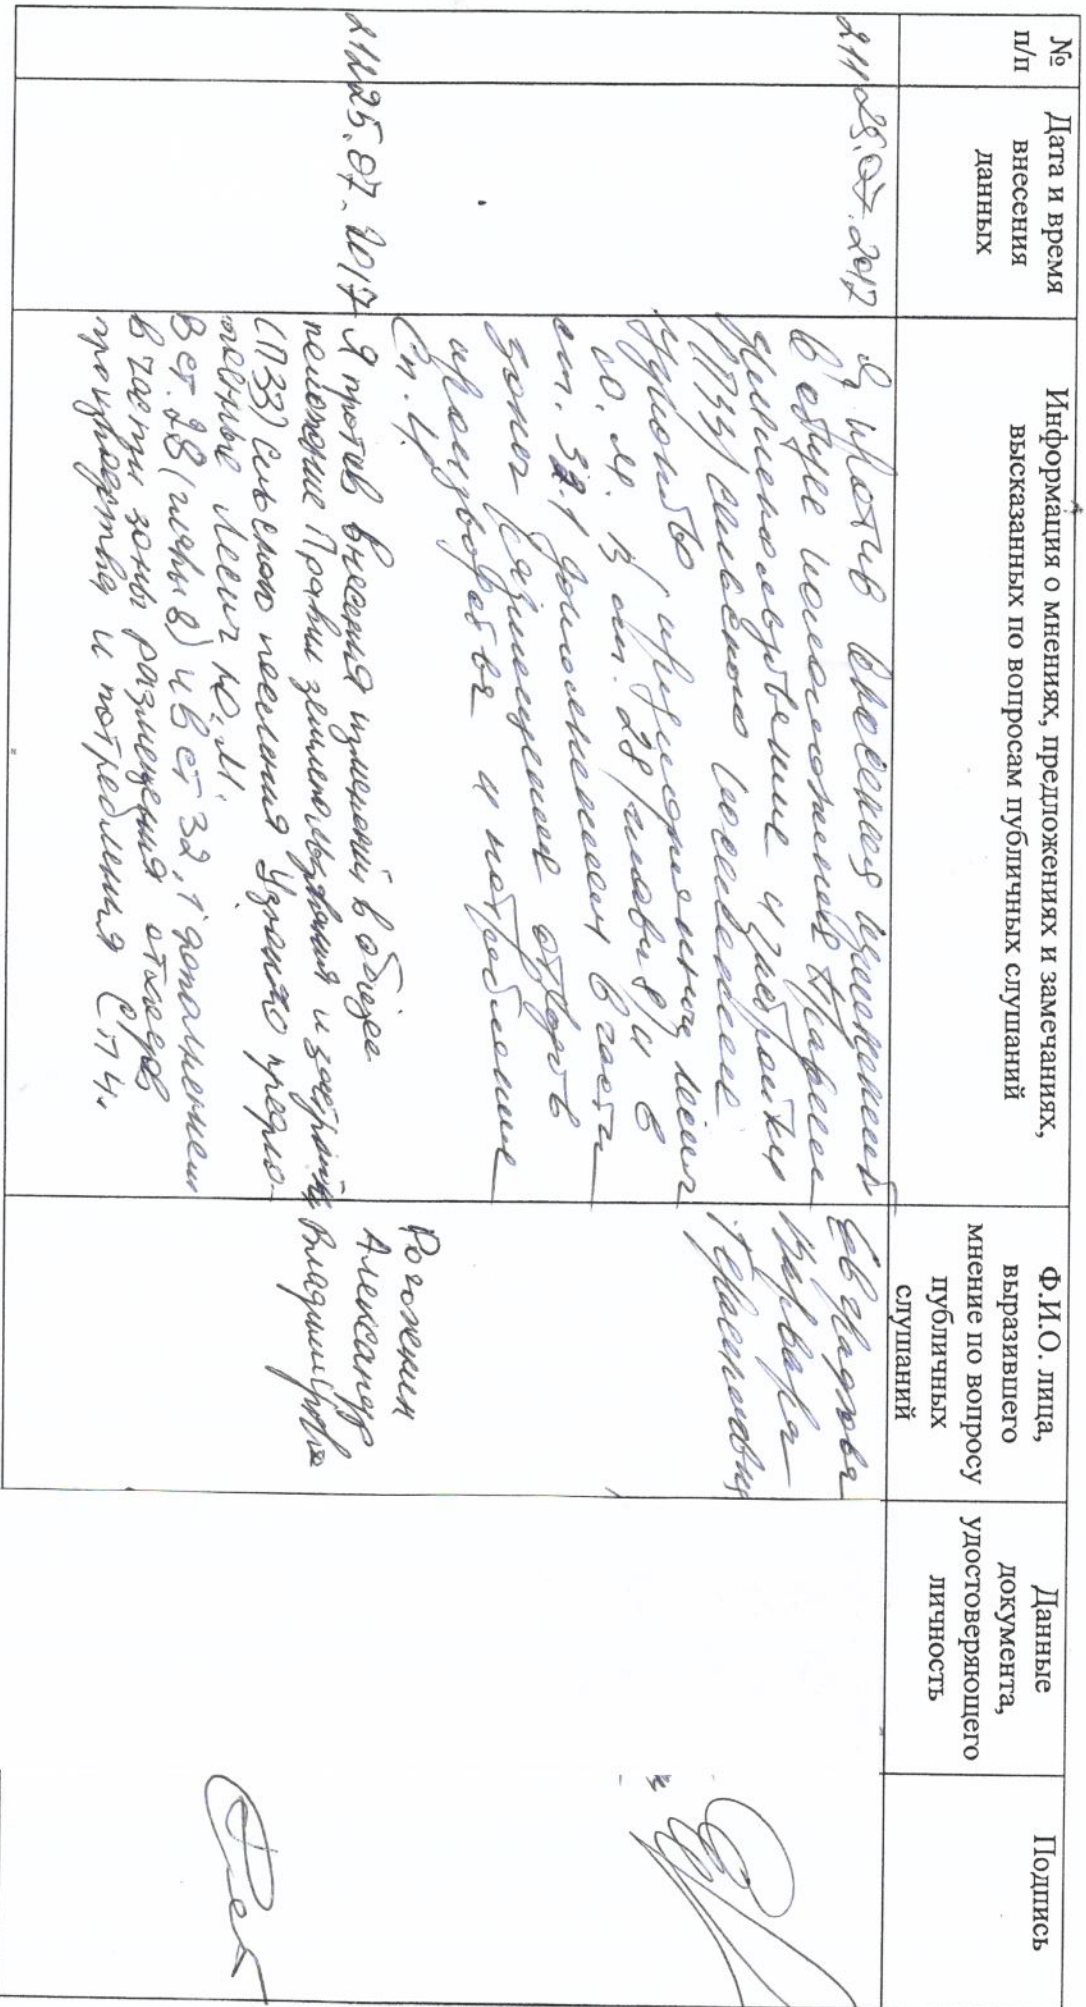 №
п/п
Дата и время
внесения
данных
Информация о мнениях, предложениях и замечаниях,
высказанных по вопросам публичных слушаний
Ф.И.О. лица,
выразившего
мнение по вопросу
публичных
слушаний
Данные
документа,
удостоверяющего
личность
Подпись
211 25.07.2017
Я против внесения изменений
в общее положение Правил
землепользование и застройки
(ПЗЗ) сельского поселения
Ю.М. В ст. 28 (главы 8) и в
ст. 32.1 дополнением в части
зоны размещения отходов
производства и потребления
Сп. 4
Варвара
212 25.07.2017
Я против внесения изменений в общее
положение Правил землепользования и застройки
(ПЗЗ) сельского поселения предло-
женные Лесич Ю.М.
В ст. 28 (главы 8) и в ст 32,1 дополнением
в части зоны размещения отходов
производства и потребления СП 4.
Рогожкин
Александр
Владимирович